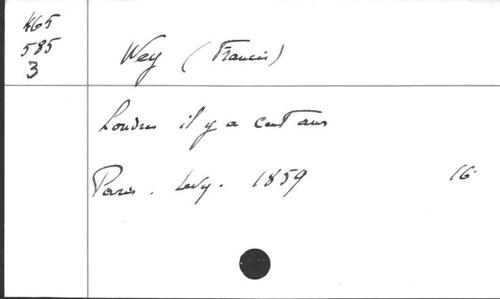 465
585
3
Wey (Francis)
Londres il y a cent ans
Paris. Levy. 1859 16